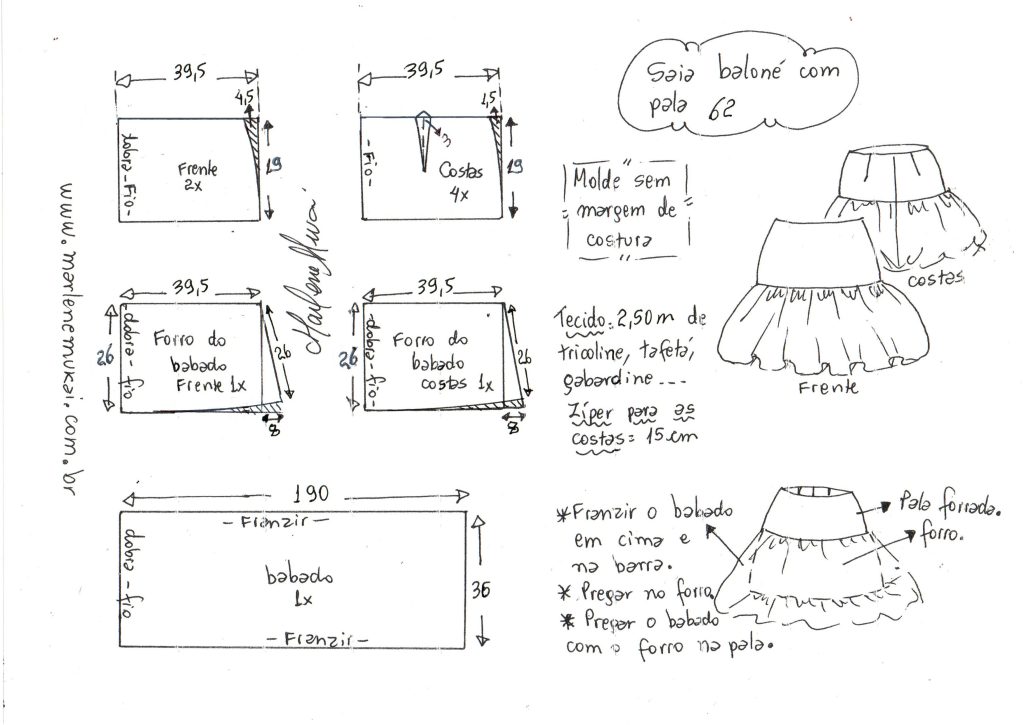 39,5
4,5
dobra-Fio-
Frente
2x
19
39,5
1,5
3
-Fio-
Costas
4x
19
Saia baloné com
pala 62
Molde sem
margem de
costura
costas
Frente
Marlene Mukai
www.marlenemukai.com.br
39,5
26
-dobra-fio
Forro do
babado
Frente 1x
26
8
39,5
26
-dobra-fio-
Forro do
babado
costas 1x
26
8
Tecido: 2,50m de
tricoline, tafetá,
gabardine ....
Zíper para as
costas= 15cm
190
-Franzir-
dobra-fio
babado
1x
36
-Franzir-
*Franzir o babado
em cima e
na barra.
* Pregar no forro
* Pregar o babado
com o forro na pala.
Pala forrada.
forro.